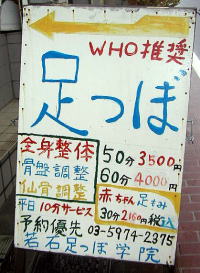 WHO推奨
足つぼ
全身整体
骨盤調整
仙骨調整
50分3500円
60分4000円
平日10分サービス
赤ちゃん足もみ
30分2160円税込
予約優先 03-5974-2375
若石足つぼ学院